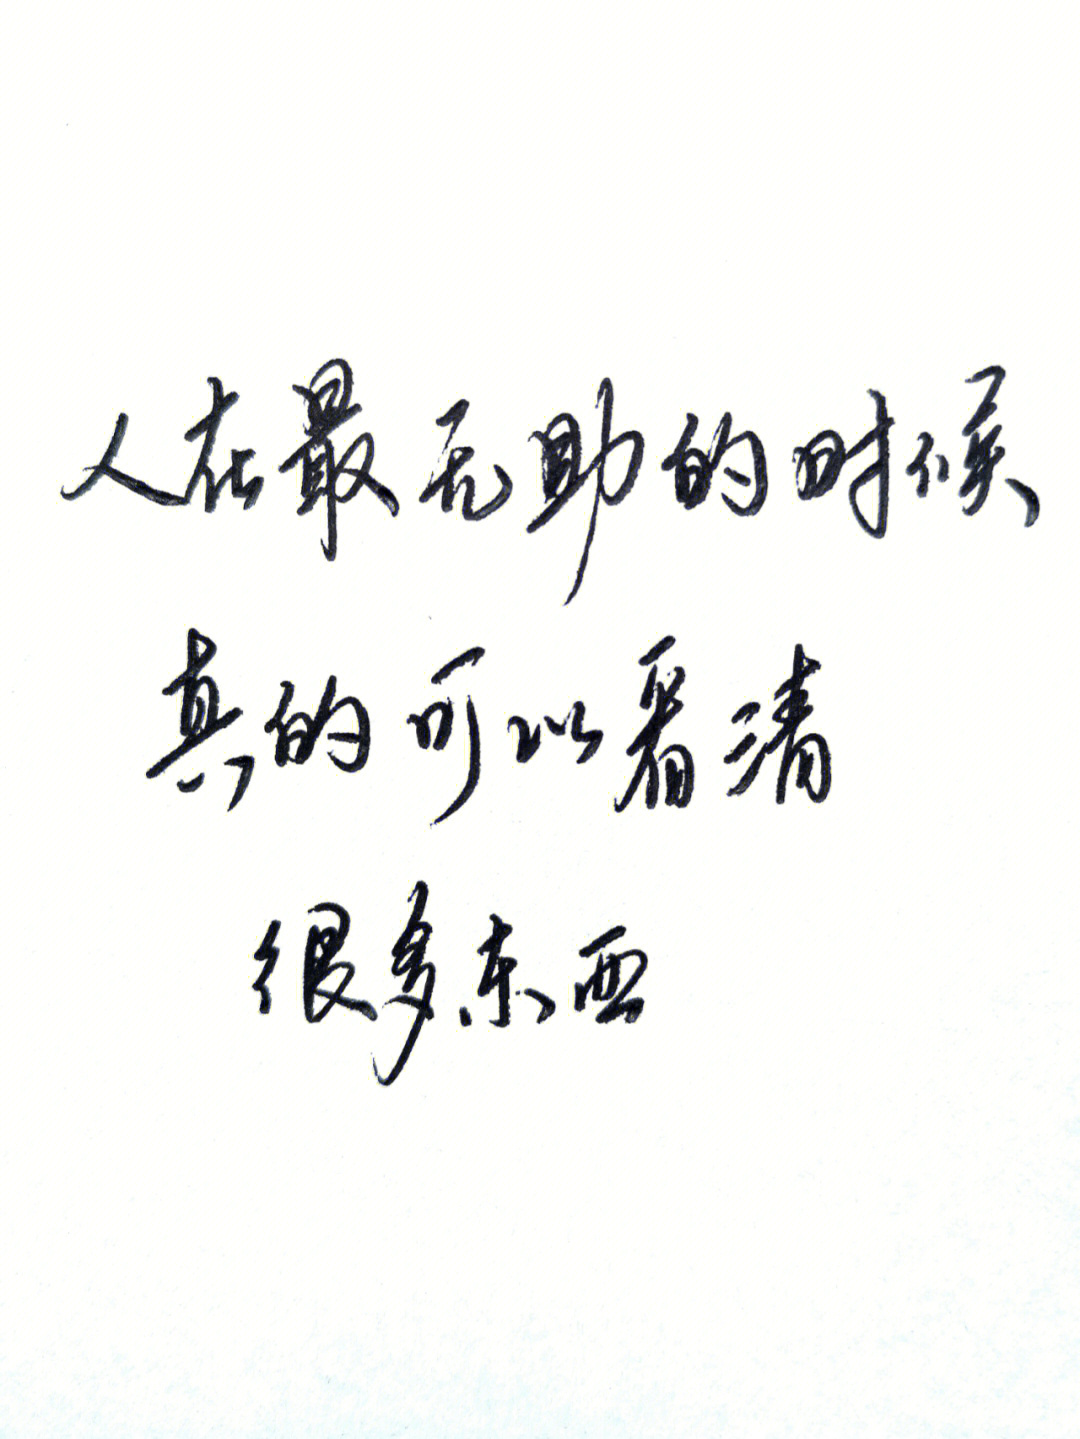 人在最无助的时候
真的可以看清
很多东西